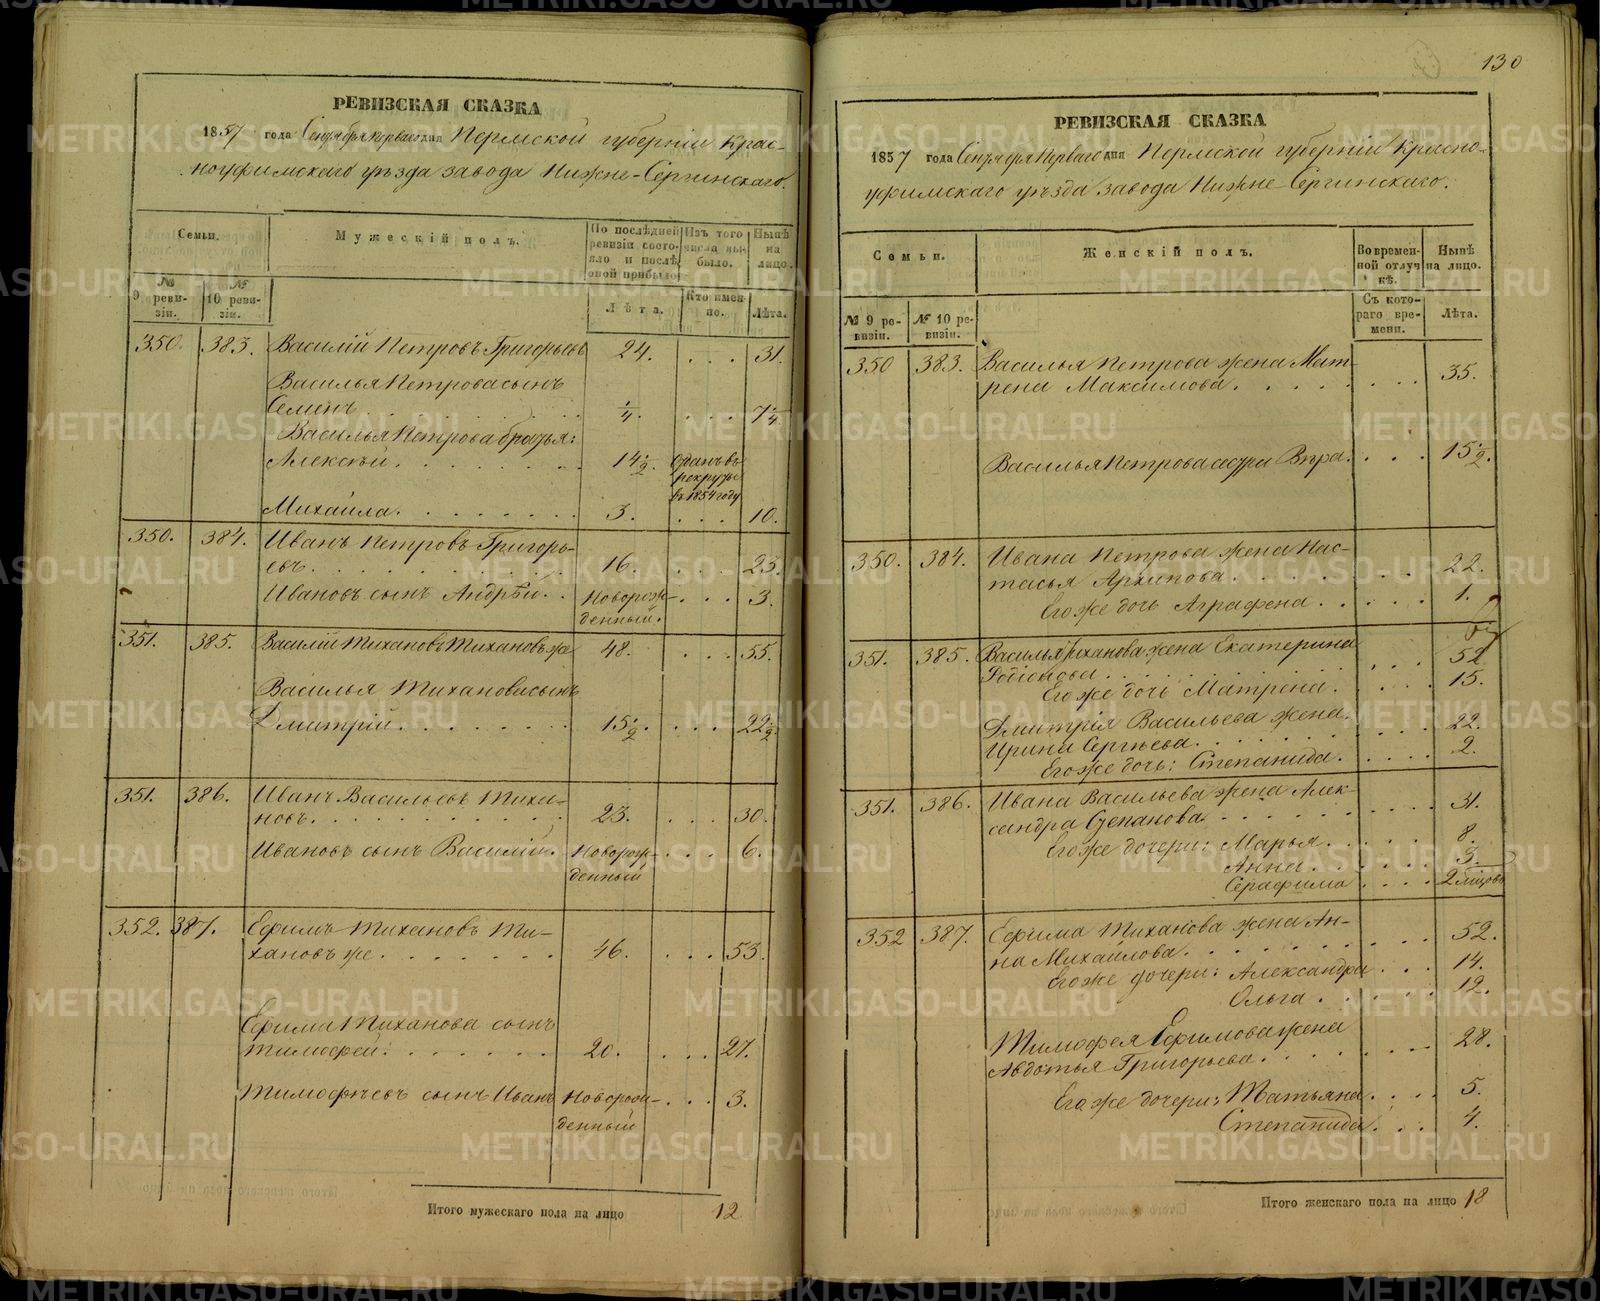 130
РЕВИЗСКАЯ СКАЗКА
1857 года Сентября перваго дня Пермской губерніи Крас-
ноуфимскаго уѣзда завода Нижне-Сергинскаго.
Семьи.
Мужескій полъ.
По послѣдней ревизіи состояло и послѣ оной прибыло
Изъ того числа выбыло.
Нынѣ на лицо.
№ 9 ревизіи.
№ 10 ревизіи.
Лѣта.
Кто именно.
Лѣта.
350. 383. Василій Петровъ Григорьевъ 24. . . . 31.
Василья Петрова сынъ
Семенъ . . . . . . . ¼ . . . 7¼
Василья Петрова братья:
Алексѣй . . . . . . . 14½. Отданъ въ
рекруты
въ 1854 году
Михайла . . . . . . . 3. . . . 10.
350. 384. Иванъ Петровъ Григорь-
евъ . . . . . . . 16. . . . 23.
Ивановъ сынъ Андрѣй . . Новорож- . . . 3.
денный.
351. 385. Василій Тихановъ Тихановъ же 48. . . . 55.
Василья Тиханова сынъ
Дмитрій . . . . . . . 15½. . . . 22½
351. 386. Иванъ Васильевъ Тиха-
новъ . . . . . . . 23. . . . 30.
Ивановъ сынъ Василій. Новорож- . . . 6.
денный
352. 387. Ефимъ Тихановъ Ти-
хановъ же . . . . . . . 46. . . . 53.
Ефима Тиханова сынъ
Тимофей . . . . . . . 20. . . . 27.
Тимофѣевъ сынъ Иванъ Новорож- . . . 3.
денный
Итого мужескаго пола на лицо 12
РЕВИЗСКАЯ СКАЗКА
1857 года Сентября Перваго дня Пермской губерніи Красно-
уфимскаго уѣзда завода Нижне-Сергинскаго.
Семьи.
Женскій полъ.
Во временной отлучкѣ.
Нынѣ на лицо.
№ 9 ревизіи.
№ 10 ревизіи.
Съ котораго времени.
Лѣта.
350 383. Василья Петрова жена Мат-
рена Максимова . . . . . . . 35.
Василья Петрова сестра Вѣра . . . . 15½.
350. 384. Ивана Петрова жена Нас-
тасья Архипова . . . . . . . 22.
Его же дочь Аграфена . . . . . 1.
351. 385. Василья Тиханова жена Екатерина
Родіонова . . . . . . . 52
Его же дочь Матрена . . . . 15.
Дмитрія Васильева жена
Ирина Сергѣева . . . . . . . 22.
Его же дочь: Степанида . . . . 2.
351. 386. Ивана Васильева жена Алек-
сандра Степанова . . . . . . . 31.
Его же дочери: Марья . . . . . 8.
Анна . . . . . 3.
Серафима . . . . 2 мѣсяцовъ
352 387. Ефима Тиханова жена Ан-
на Михайлова . . . . . . . 52.
Его же дочери: Александра . . . 14.
Ольга . . . . . 12.
Тимофея Ефимова жена
Авдотья Григорьева . . . . . . . 28.
Его же дочери: Татьяна . . . . 5.
Степанида . . . 4.
Итого женскаго пола на лицо 18
METRIKI.GASO-URAL.RU